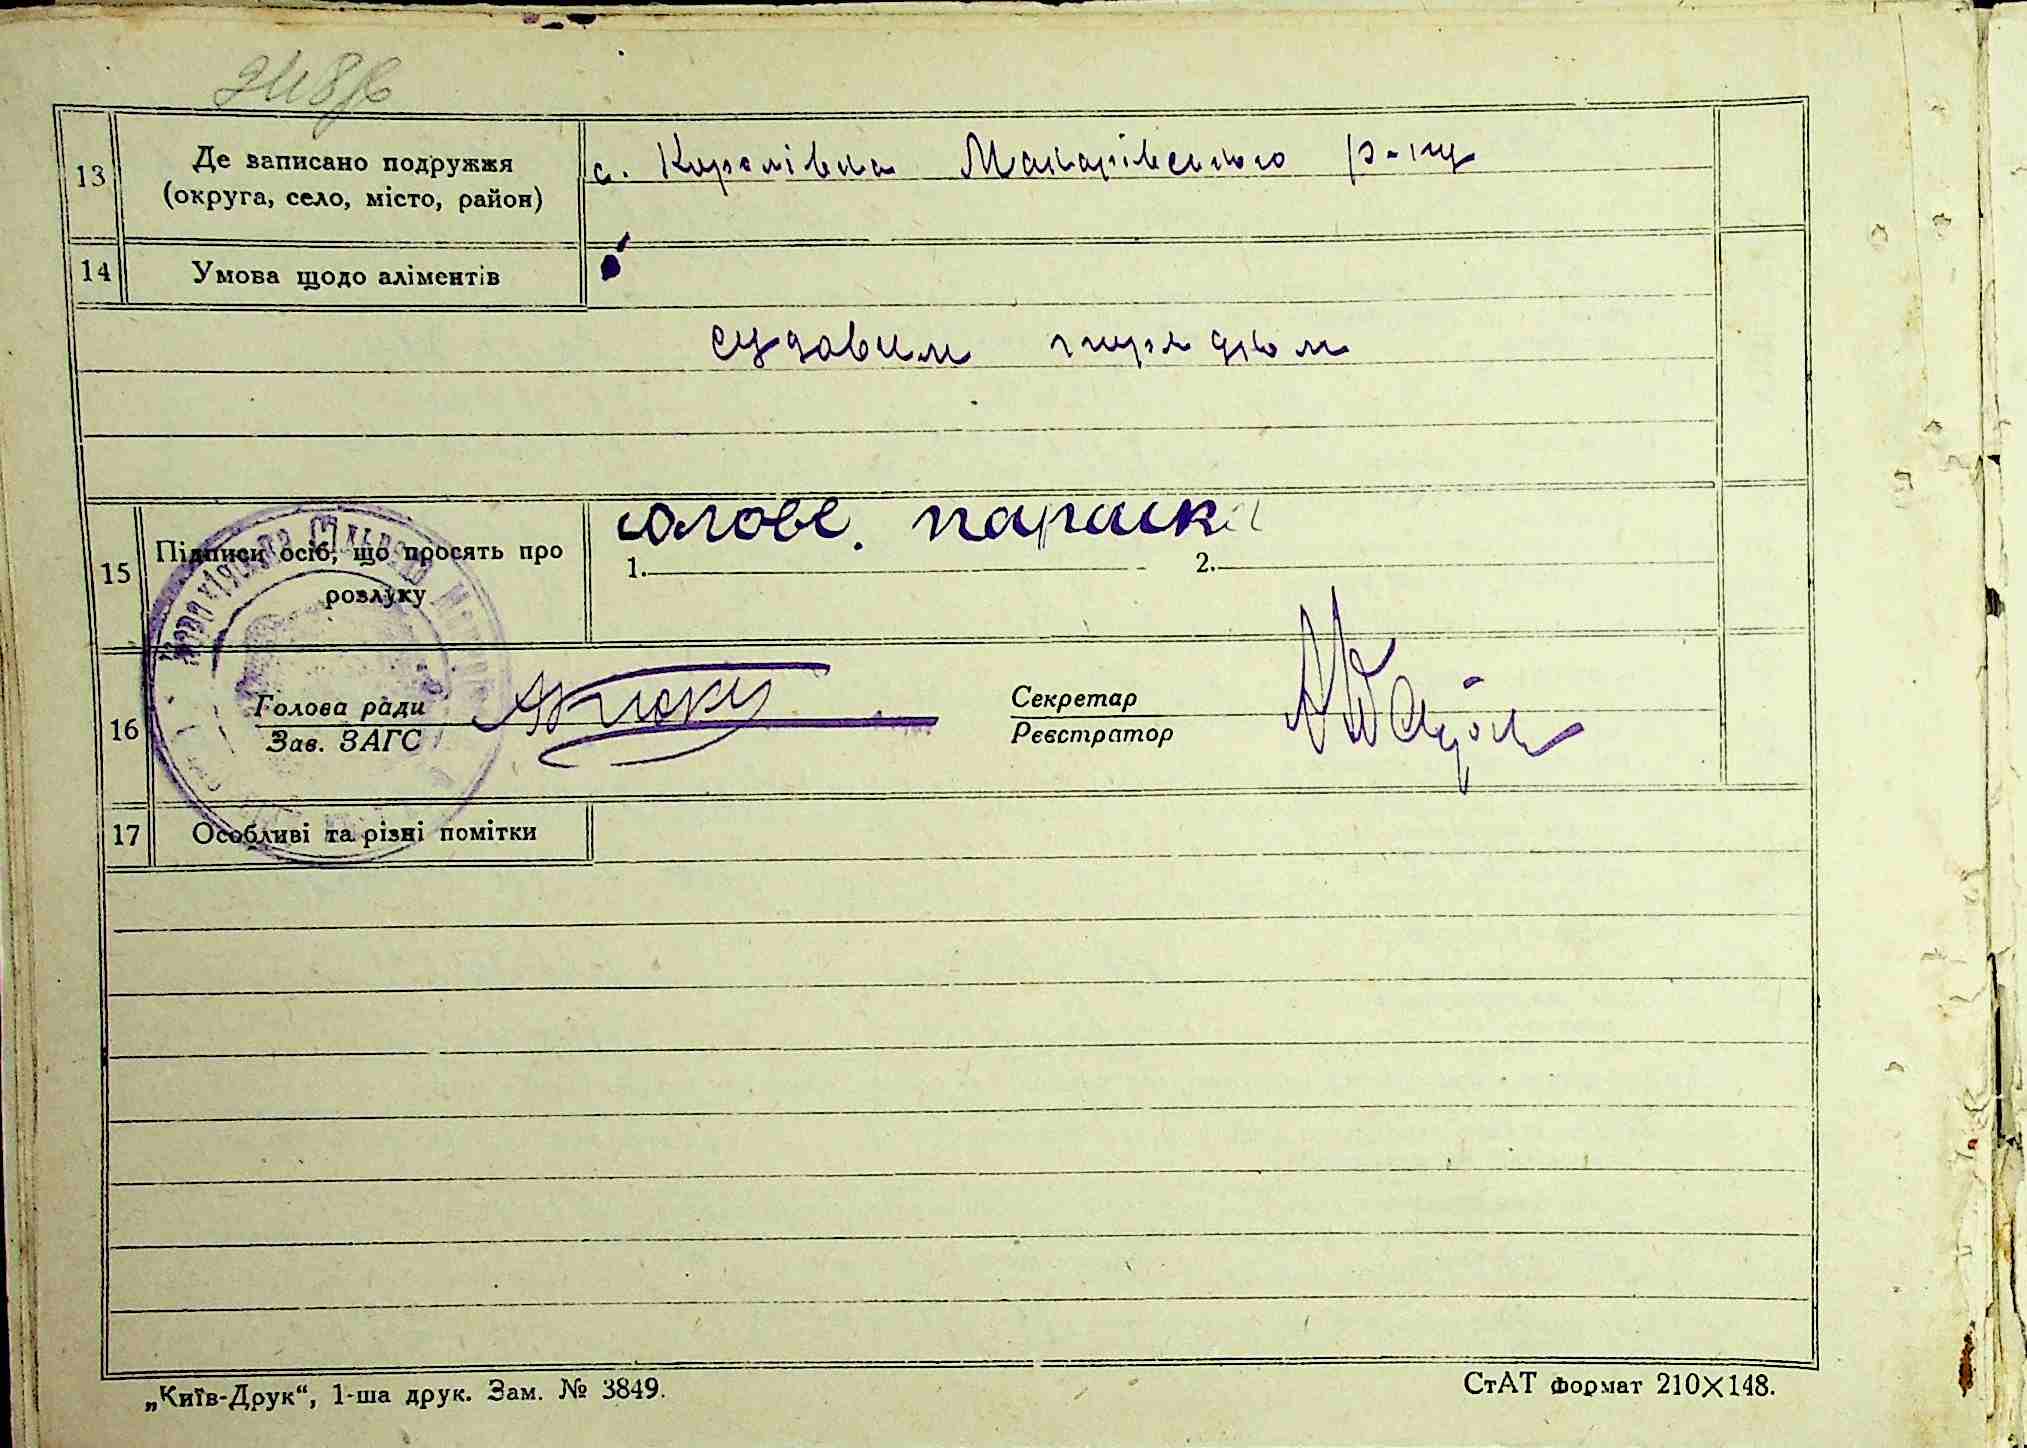 13 Де записано подружжя
(округа, село, місто, район)
с. Королівка Макарівського р-ну
14 Умова щодо аліментів
судовим порядком
15 Підписи осіб, що просять про
розлуку
параска
1. 2.
16 Голова ради
Зав. ЗАГС
Секретар
Реєстратор
17 Особливі та різні помітки
„Київ-Друк“, 1-ша друк. Зам. № 3849.
СтАТ формат 210×148.